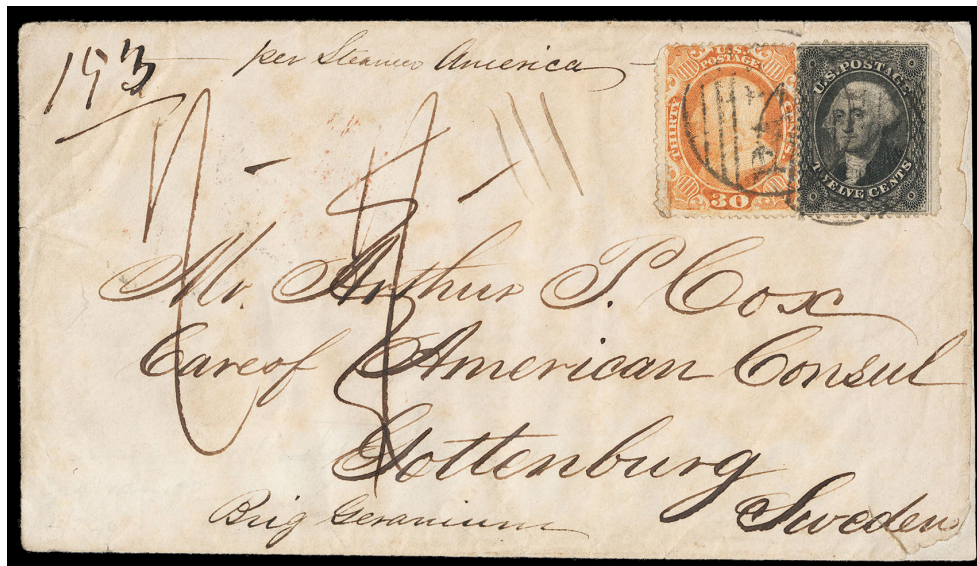 193
per Steamer America
U.S.
POSTAGE
THIRTY
CENTS
30
U.S. POSTAGE
TWELVE CENTS
Mr. Arthur P. Cox
Care of American Consul
Gottenburg
Sweden
Brig Geranium